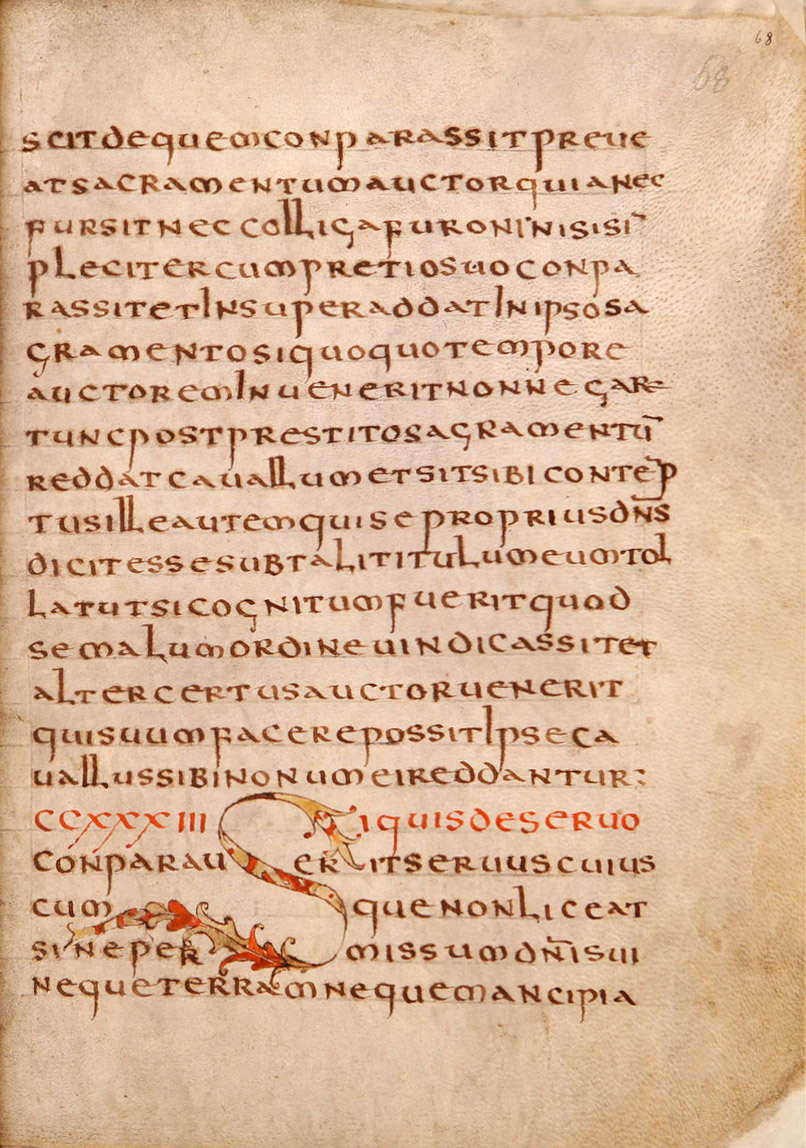 68
68
scitdequemconparassitpreue
atsacramentumauctorquianec
fursitneccolligafuroninisisī
plecitercumpretiosuoconpa
rassitetinsuperaddatinipsosa
gramentosiquoquotempore
auctoreminueneritnonnegar&
tuncpostprestitosagramentū
reddatcauallumetsitsibicontēp
tusilleautemquisepropriusdn̄s
dicitessesubtalititulumeumtol
latutsicognitumfueritquod
semalumordineuindicassitet
altercertusauctoruenerit
quisuumfacerepossitipseca
uallussibinonumeireddantur:
CCXXXIII Siquisdeseruo
conparaueritseruuscuius
cumque nonliceat
sinepermissumdn̄isui
nequeterramnequemancipia